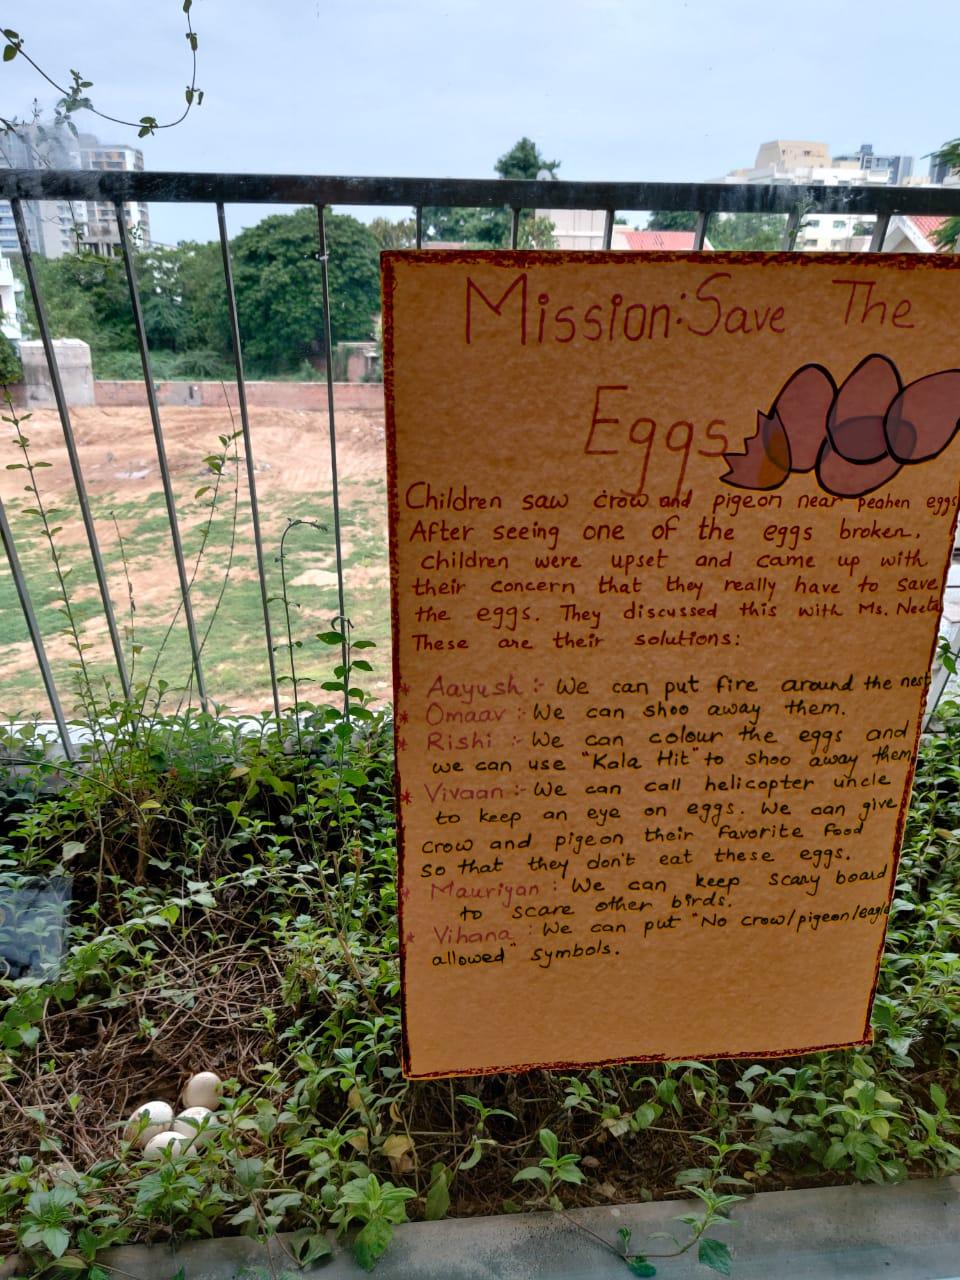 Mission: Save The
Eggs
Children saw crow and pigeon near peahen eggs
After seeing one of the eggs broken.
children were upset and came up with
their concern that they really have to save
the eggs. They discussed this with Ms. Neeta
These are their solutions:
* Aayush :- We can put fire around the nest
* Omaav :- We can shoo away them.
* Rishi :- We can colour the eggs and
we can use "Kala Hit" to shoo away them
* Vivaan :- We can call helicopter uncle
to keep an eye on eggs. We can give
crow and pigeon their favorite food
so that they don't eat these eggs.
* Mauriyan : We can keep scary board
to scare other birds.
* Vihana : We can put "No crow/pigeon/eagle
allowed" symbols.